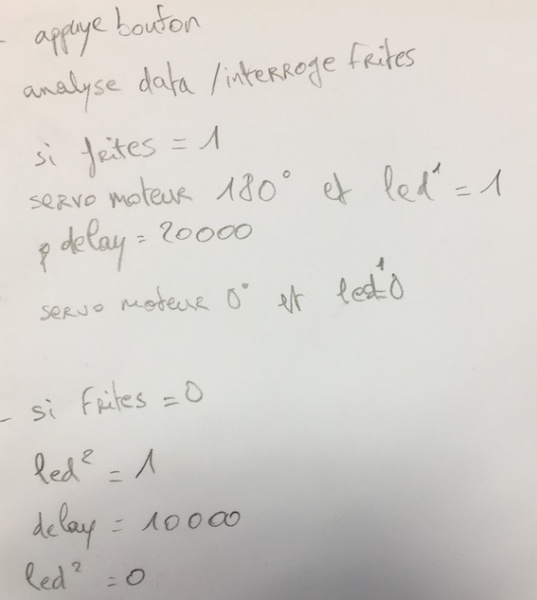 - appuye bouton
analyse data / interroge frites
si frites = 1
servo moteur 180° et led¹ = 1
delay = 20000
servo moteur 0° et led¹=0
- si frites = 0
led² = 1
delay = 10000
led² = 0